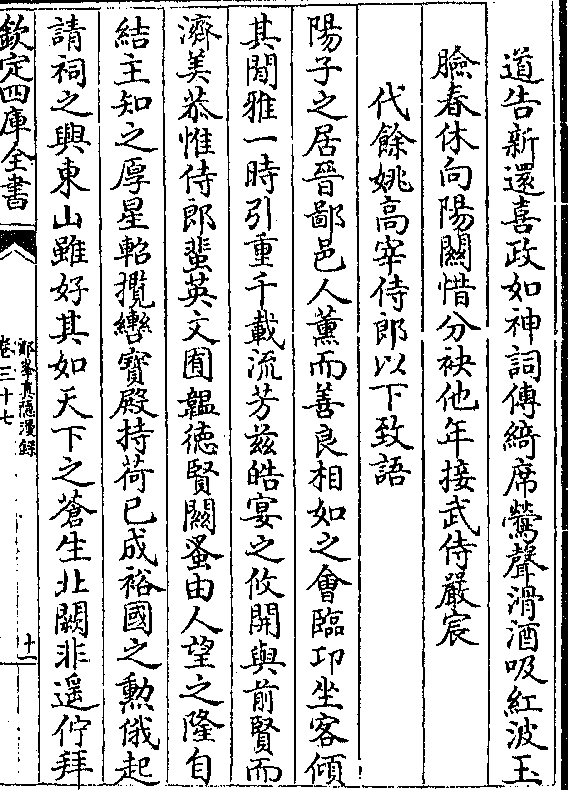 道告新還喜政如神詞傳綺席鶯聲滑酒吸紅波玉
臉春休向陽關惜分袂他年接武侍嚴宸
代餘姚高宰侍郎以下致語
陽子之居晉鄙邑人薰而善良相如之會臨卭坐客傾
其閒雅一時引重千載流芳兹皓宴之攸開與前賢而
濟美恭惟侍郎蜚英文囿韞徳賢闗蚤由人望之隆自
結主知之厚星軺攬轡寶殿持荷已成裕國之勲俄起
請祠之興東山雖好其如天下之蒼生北闕非遥佇拜
欽定四庫全書
鄮峯真隱漫録
卷三十七
十一